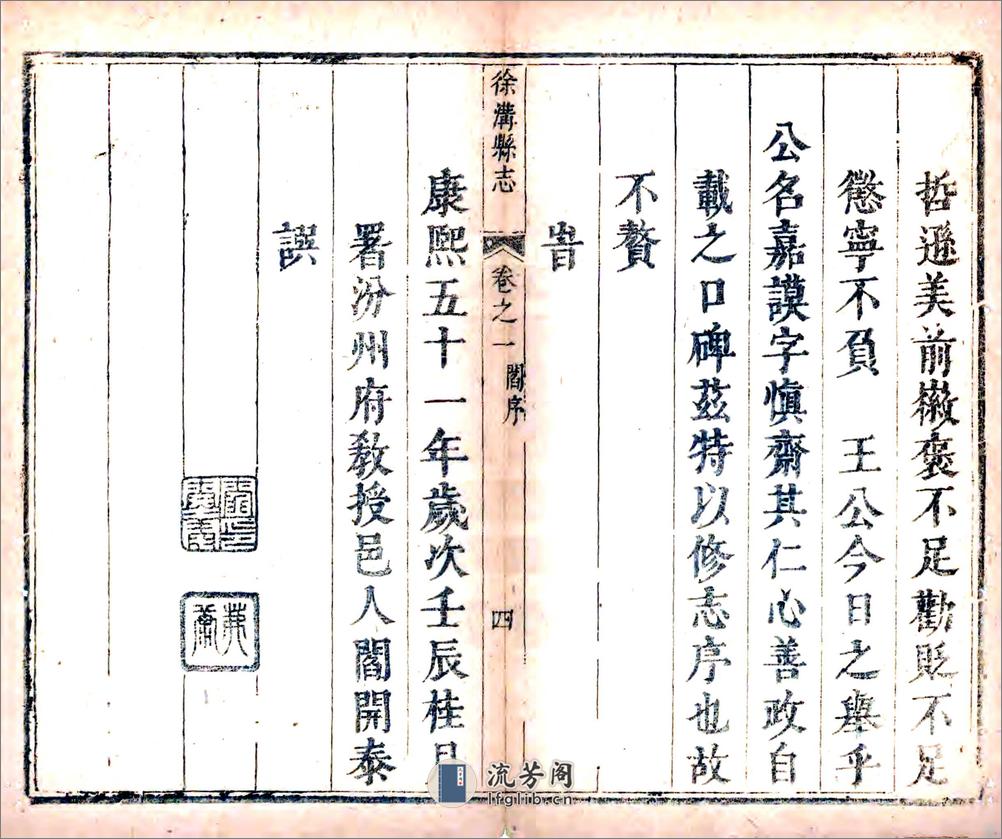 哲遜美前徽褒不足勸貶不足
懲寧不負　王公今日之舉乎
公名嘉謨字慎齋其仁心善政自
載之口碑茲特以修志序也故
不贅
旹
徐溝縣志
卷之一
閻序
四
康熙五十一年歲次壬辰桂月
署汾州府教授邑人閻開泰
譔
流芳阁
lfglib.cn